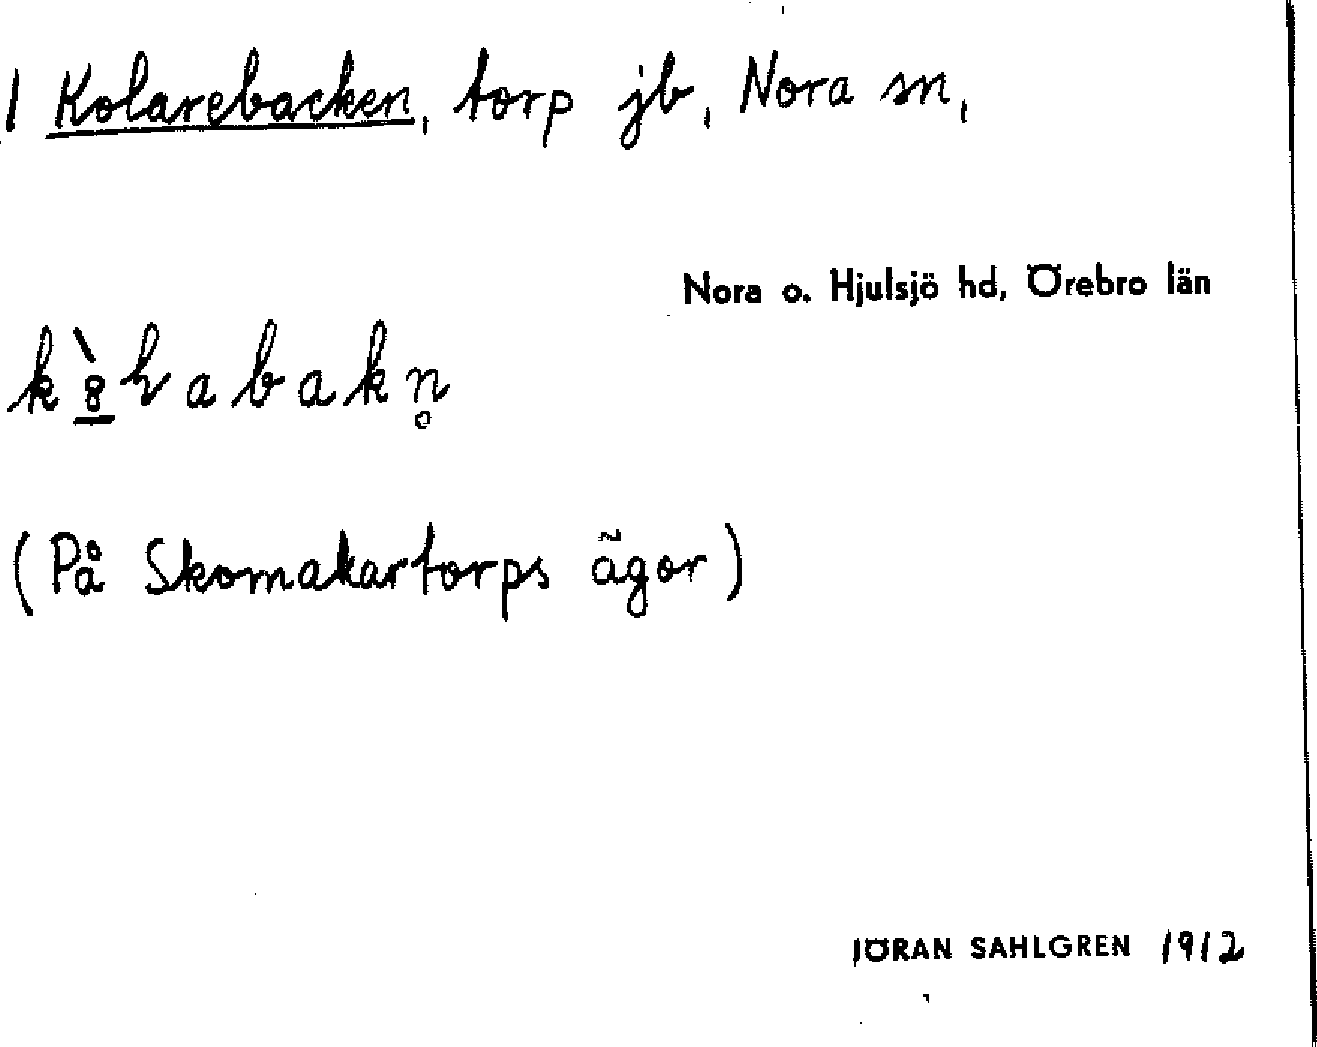 1 Kolarebacken, torp jb, Nora sn,
Nora o. Hjulsjö hd, Örebro län
(På Skomakartorps ägor)
JÖRAN SAHLGREN 1912